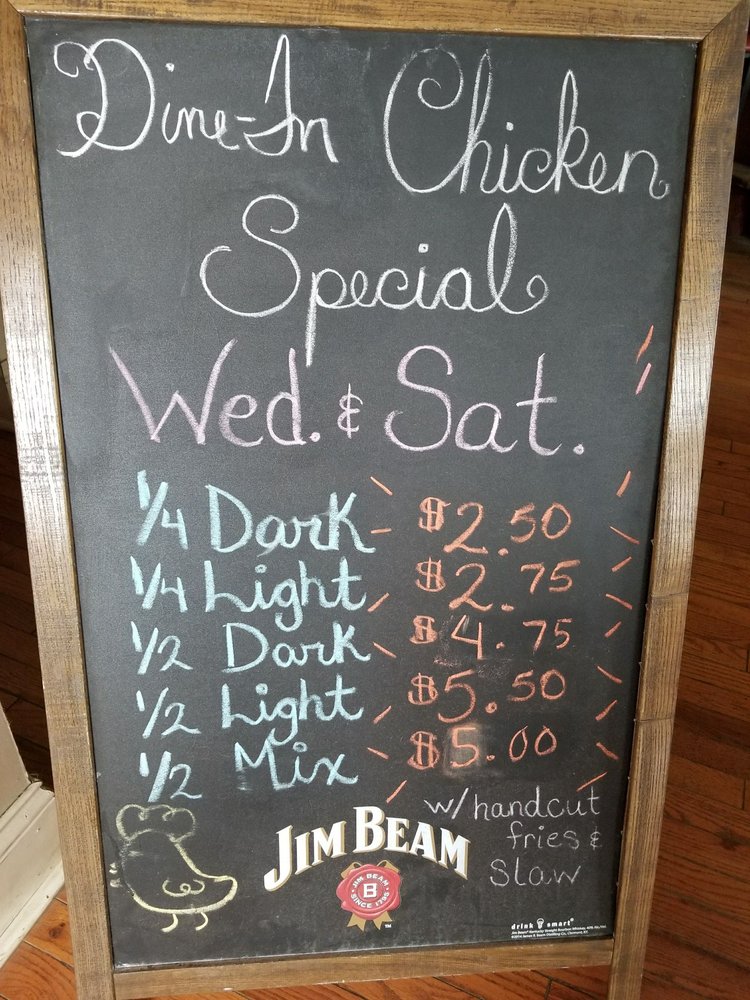 Dine-In Chicken
Special
Wed. & Sat.
1/4 Dark $2.50
1/4 Light $2.75
1/2 Dark $4.75
1/2 Light $5.50
1/2 Mix $5.00
w/ handcut
fries &
slaw
JIM BEAM
JIM BEAM
B
SINCE 1795
TM
drink smart®